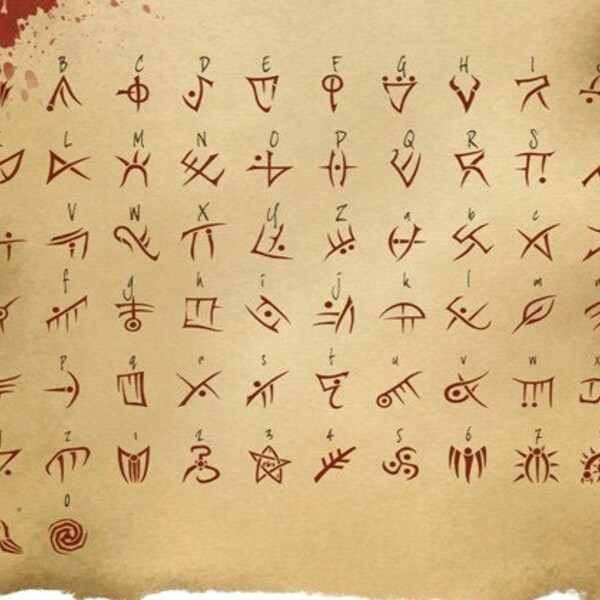 B C D E F G H I
L M N O P Q R S
V W X Y Z a b c
f g h i j k l m
p q r s t u v w x
z 1 2 3 4 5 6 7
0